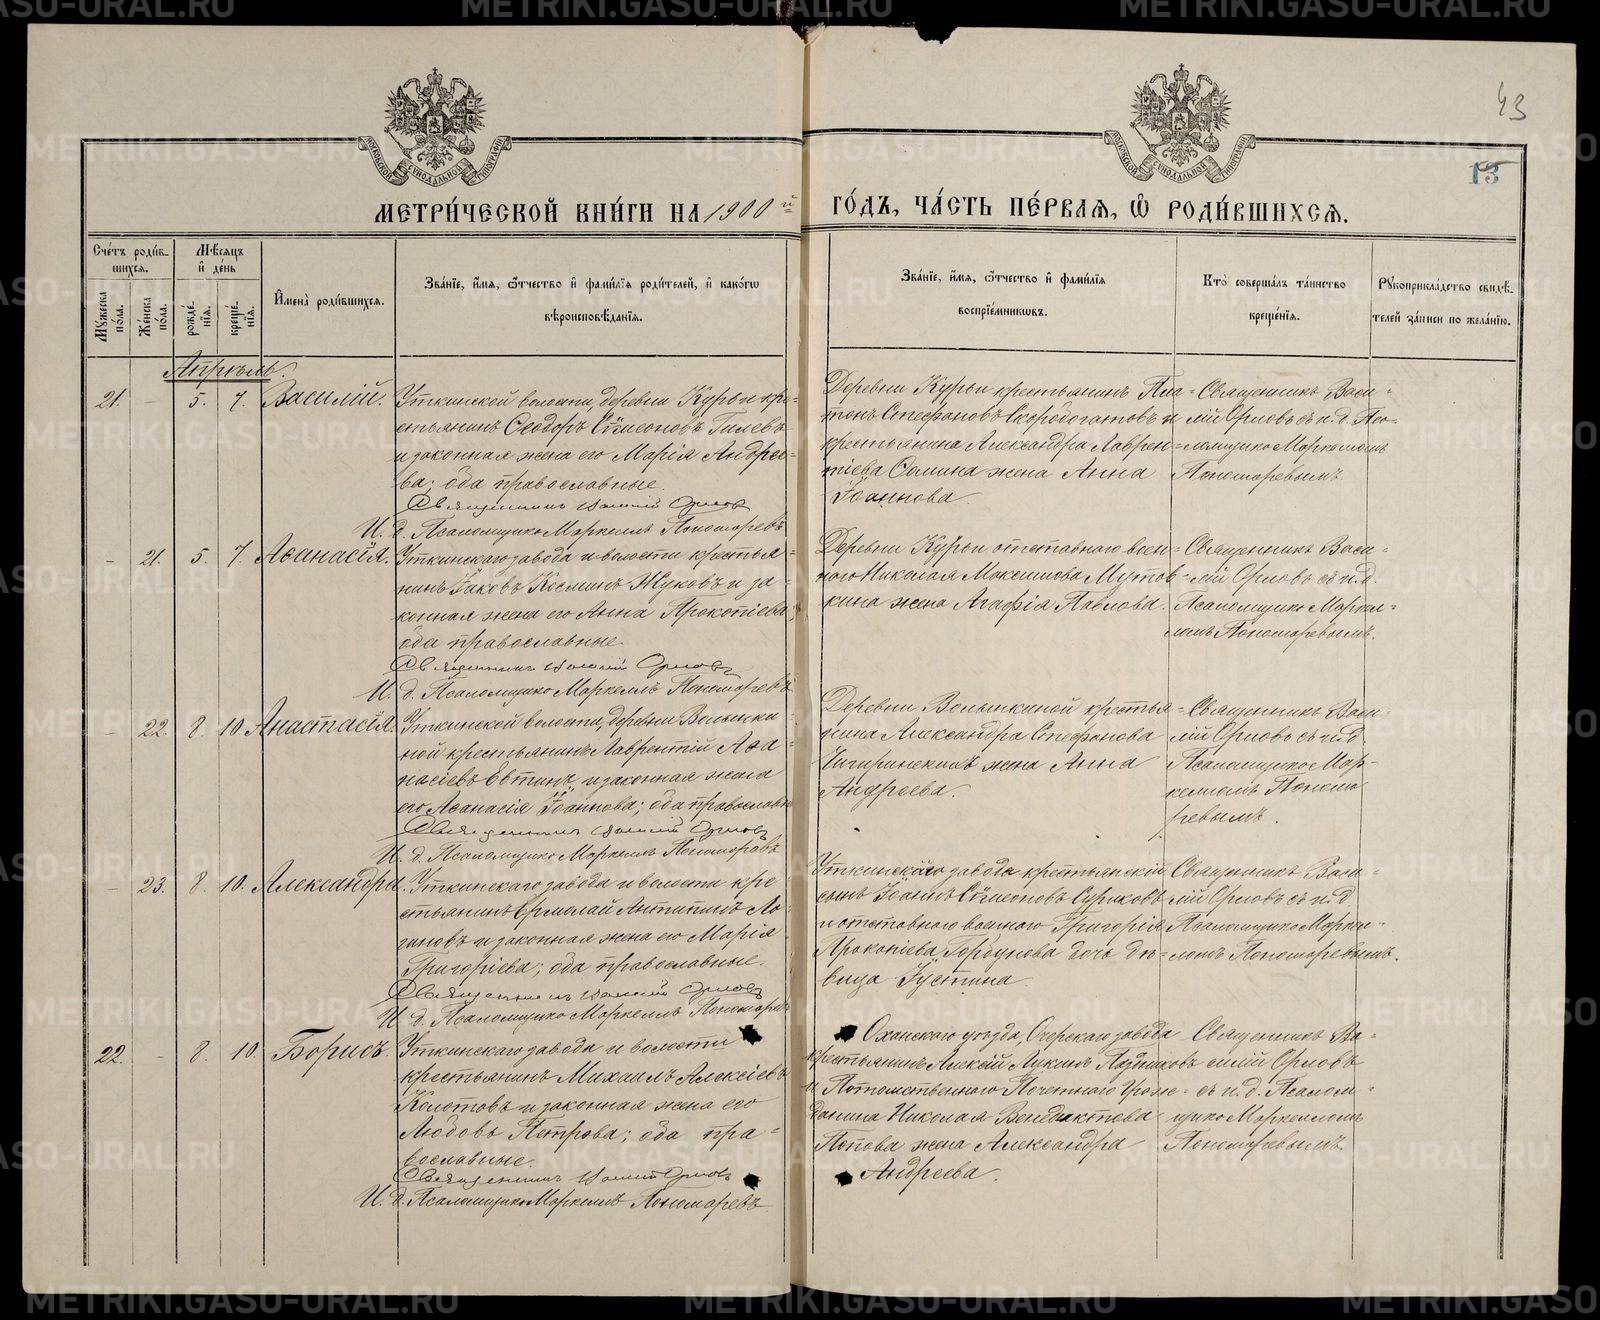 43
13
МЕТРИ́ЧЕСКОЙ КНИ́ГИ НА 1900й ГО́ДЪ, ЧА́СТЬ ПЕ́РВАѦ, Ѽ РОДИ́ВШИХСѦ.
Сче́тъ роди́в-
шихсѧ.
Мꙋжеска по́ла.
Же́нска по́ла.
Мѣ́сяцъ и де́нь
рожде́-нїѧ.
креще́-нїѧ.
И́мена̀ роди́вшихсѧ.
Зва́нїе, и́мѧ, ѻ́тчество и фами́лїѧ роди́телей, и како́гѡ
вѣроисповѣ́данїѧ.
Зва́нїе, и́мѧ, ѻ́тчество и фами́лїѧ
воспрїе́мникѡвъ.
Кто̀ соверша́лъ та́инство
креще́нїѧ.
Рꙋкоприкла́дство свидѣ́-
телей за́писи по жела́нїю.
Апрѣль.
21. - 5. 7. Василій.
Уткинской волости, деревни Курьи кре-
стьянинъ Ѳеодоръ Сѷмеоновъ Гилевъ
и законная жена его Марія Андрее-
ва; оба православные.
Священникъ Василій Орловъ
И. д. Псаломщика Маркеллъ Пономаревъ
Деревни Курьи крестьянинъ Пла-
тонъ Стефановъ Скоробогатовъ и
крестьянина Александра Лаврен-
тіева Сомина жена Анна
Іоаннова
Священникъ Васи-
лій Орловъ съ и. д. Пса-
ломщика Маркелломъ
Пономаревымъ.
- 21. 5. 7. Аѳанасія.
Уткинскаго завода и волости крестья-
нинъ Іаковъ Космин Жуковъ и за-
конная жена его Анна Прокопіева;
оба православные.
Священникъ Василій Орловъ
И. д. Псаломщика Маркеллъ Пономаревъ
Деревни Курьи отставного воен-
ного Николая Максимова Мутов-
кина жена Агафія Павлова.
Священникъ Васи-
лій Орловъ съ и. д.
Псаломщика Маркел-
ломъ Пономаревымъ.
- 22. 8. 10. Анастасія.
Уткинской волости, деревни Волынки-
ной крестьянинъ Лаврентій Аѳа-
насіевъ Евтинъ и законная жена
его Аѳанасія Іоаннова; оба православны
Священникъ Василій Орловъ
И. д. Псаломщика Маркеллъ Пономаревъ
Деревни Волынкиной крестья-
нина Александра Стефанова
Чигиринскихъ жена Анна
Андреева.
Священникъ Васи-
лій Орловъ съ и. д.
Псаломщика Мар-
келломъ Понома
ревымъ.
- 23. 8. 10. Александра.
Уткинскаго завода и волости кре
стьянинъ Ермолай Антипинъ Ло-
гиновъ и законная жена его Марія
Григоріева; оба православные.
Священникъ Василій Орловъ
И. д. Псаломщика Маркеллъ Пономарев
Уткинскаго завода крестьянскій
сынъ Іоаннъ Сѷмеоновъ Суриковъ
и отставного военного Григорія
Прокопіева Горбунова дочь дѣ-
вица Іустина
Священникъ Васи-
лій Орловъ съ и. д.
Псаломщика Марке-
ломъ Пономаревымъ.
22. - 8. 10. Борисъ.
Уткинскаго завода и волости
крестьянинъ Михаилъ Алексіевъ
Колотовъ и законная жена его
Любовь Петрова; оба пра-
вославные.
Священникъ Василій Орловъ
И. д. Псаломщика Маркеллъ Пономаревъ
Оханскаго уѣзда, Очерскаго завода
крестьянинъ Алексій Лукинъ Поздняковъ
и Потомственного Почетного Граж-
данина Николая Венедиктова
Попова жена Александра
Андреева.
Священникъ Ва-
силій Орловъ
съ и. д. Псалом-
щика Маркелломъ
Пономаревымъ
METRIKI.GASO-URAL.RU